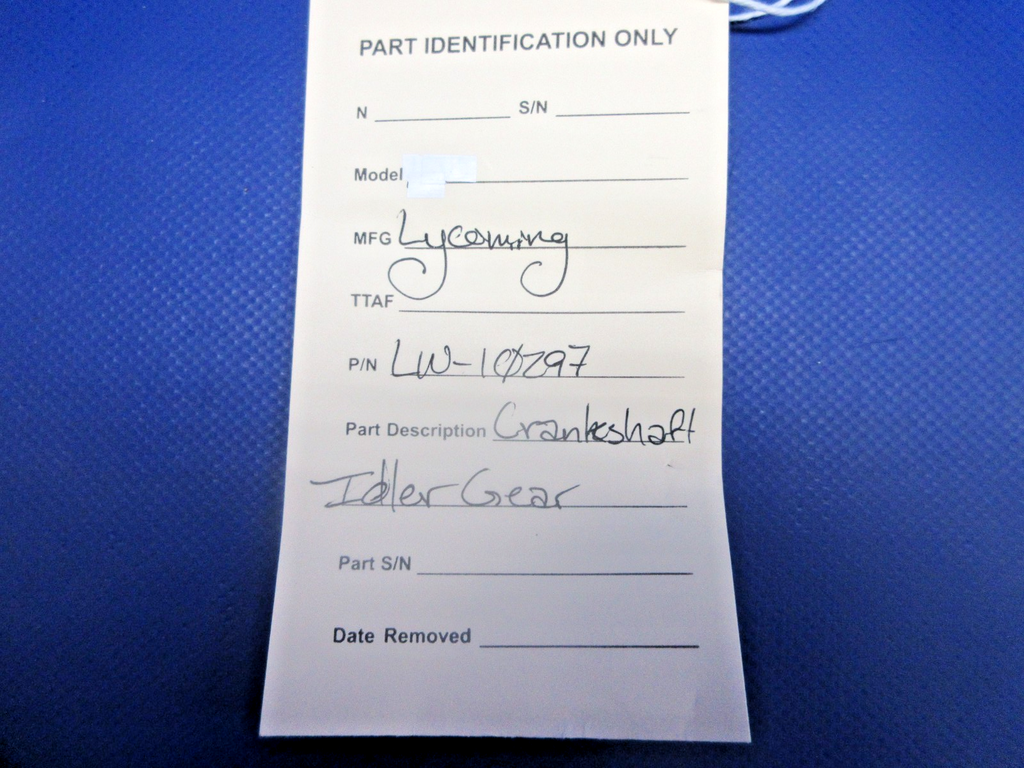 PART IDENTIFICATION ONLY
N S/N
Model
MFG Lycoming
TTAF
P/N LW-10297
Part Description Crankshaft
Idler Gear
Part S/N
Date Removed